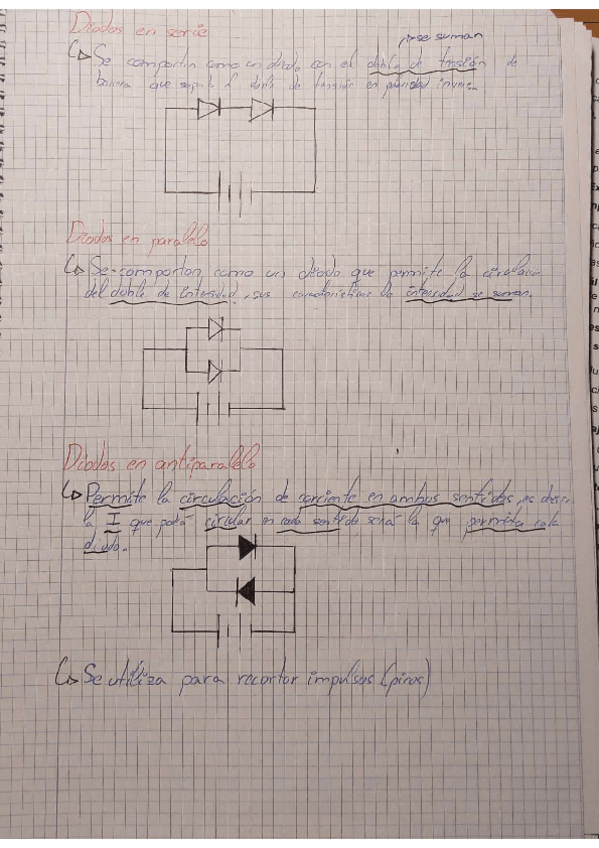 Diodos en serie
se suman
Se comportan como un diodo con el doble de tensión de
barrera que soporta el doble de tensión en polaridad inversa.
Diodos en paralelo
Se comportan como un diodo que permite la circulación
del doble de intensidad, sus características de intensidad se suman.
Diodos en antiparalelo
Permite la circulación de corriente en ambos sentidos, es decir,
la I que podrá circular en cada sentido será la que permita cada
diodo.
Se utiliza para recortar impulsos (picos)